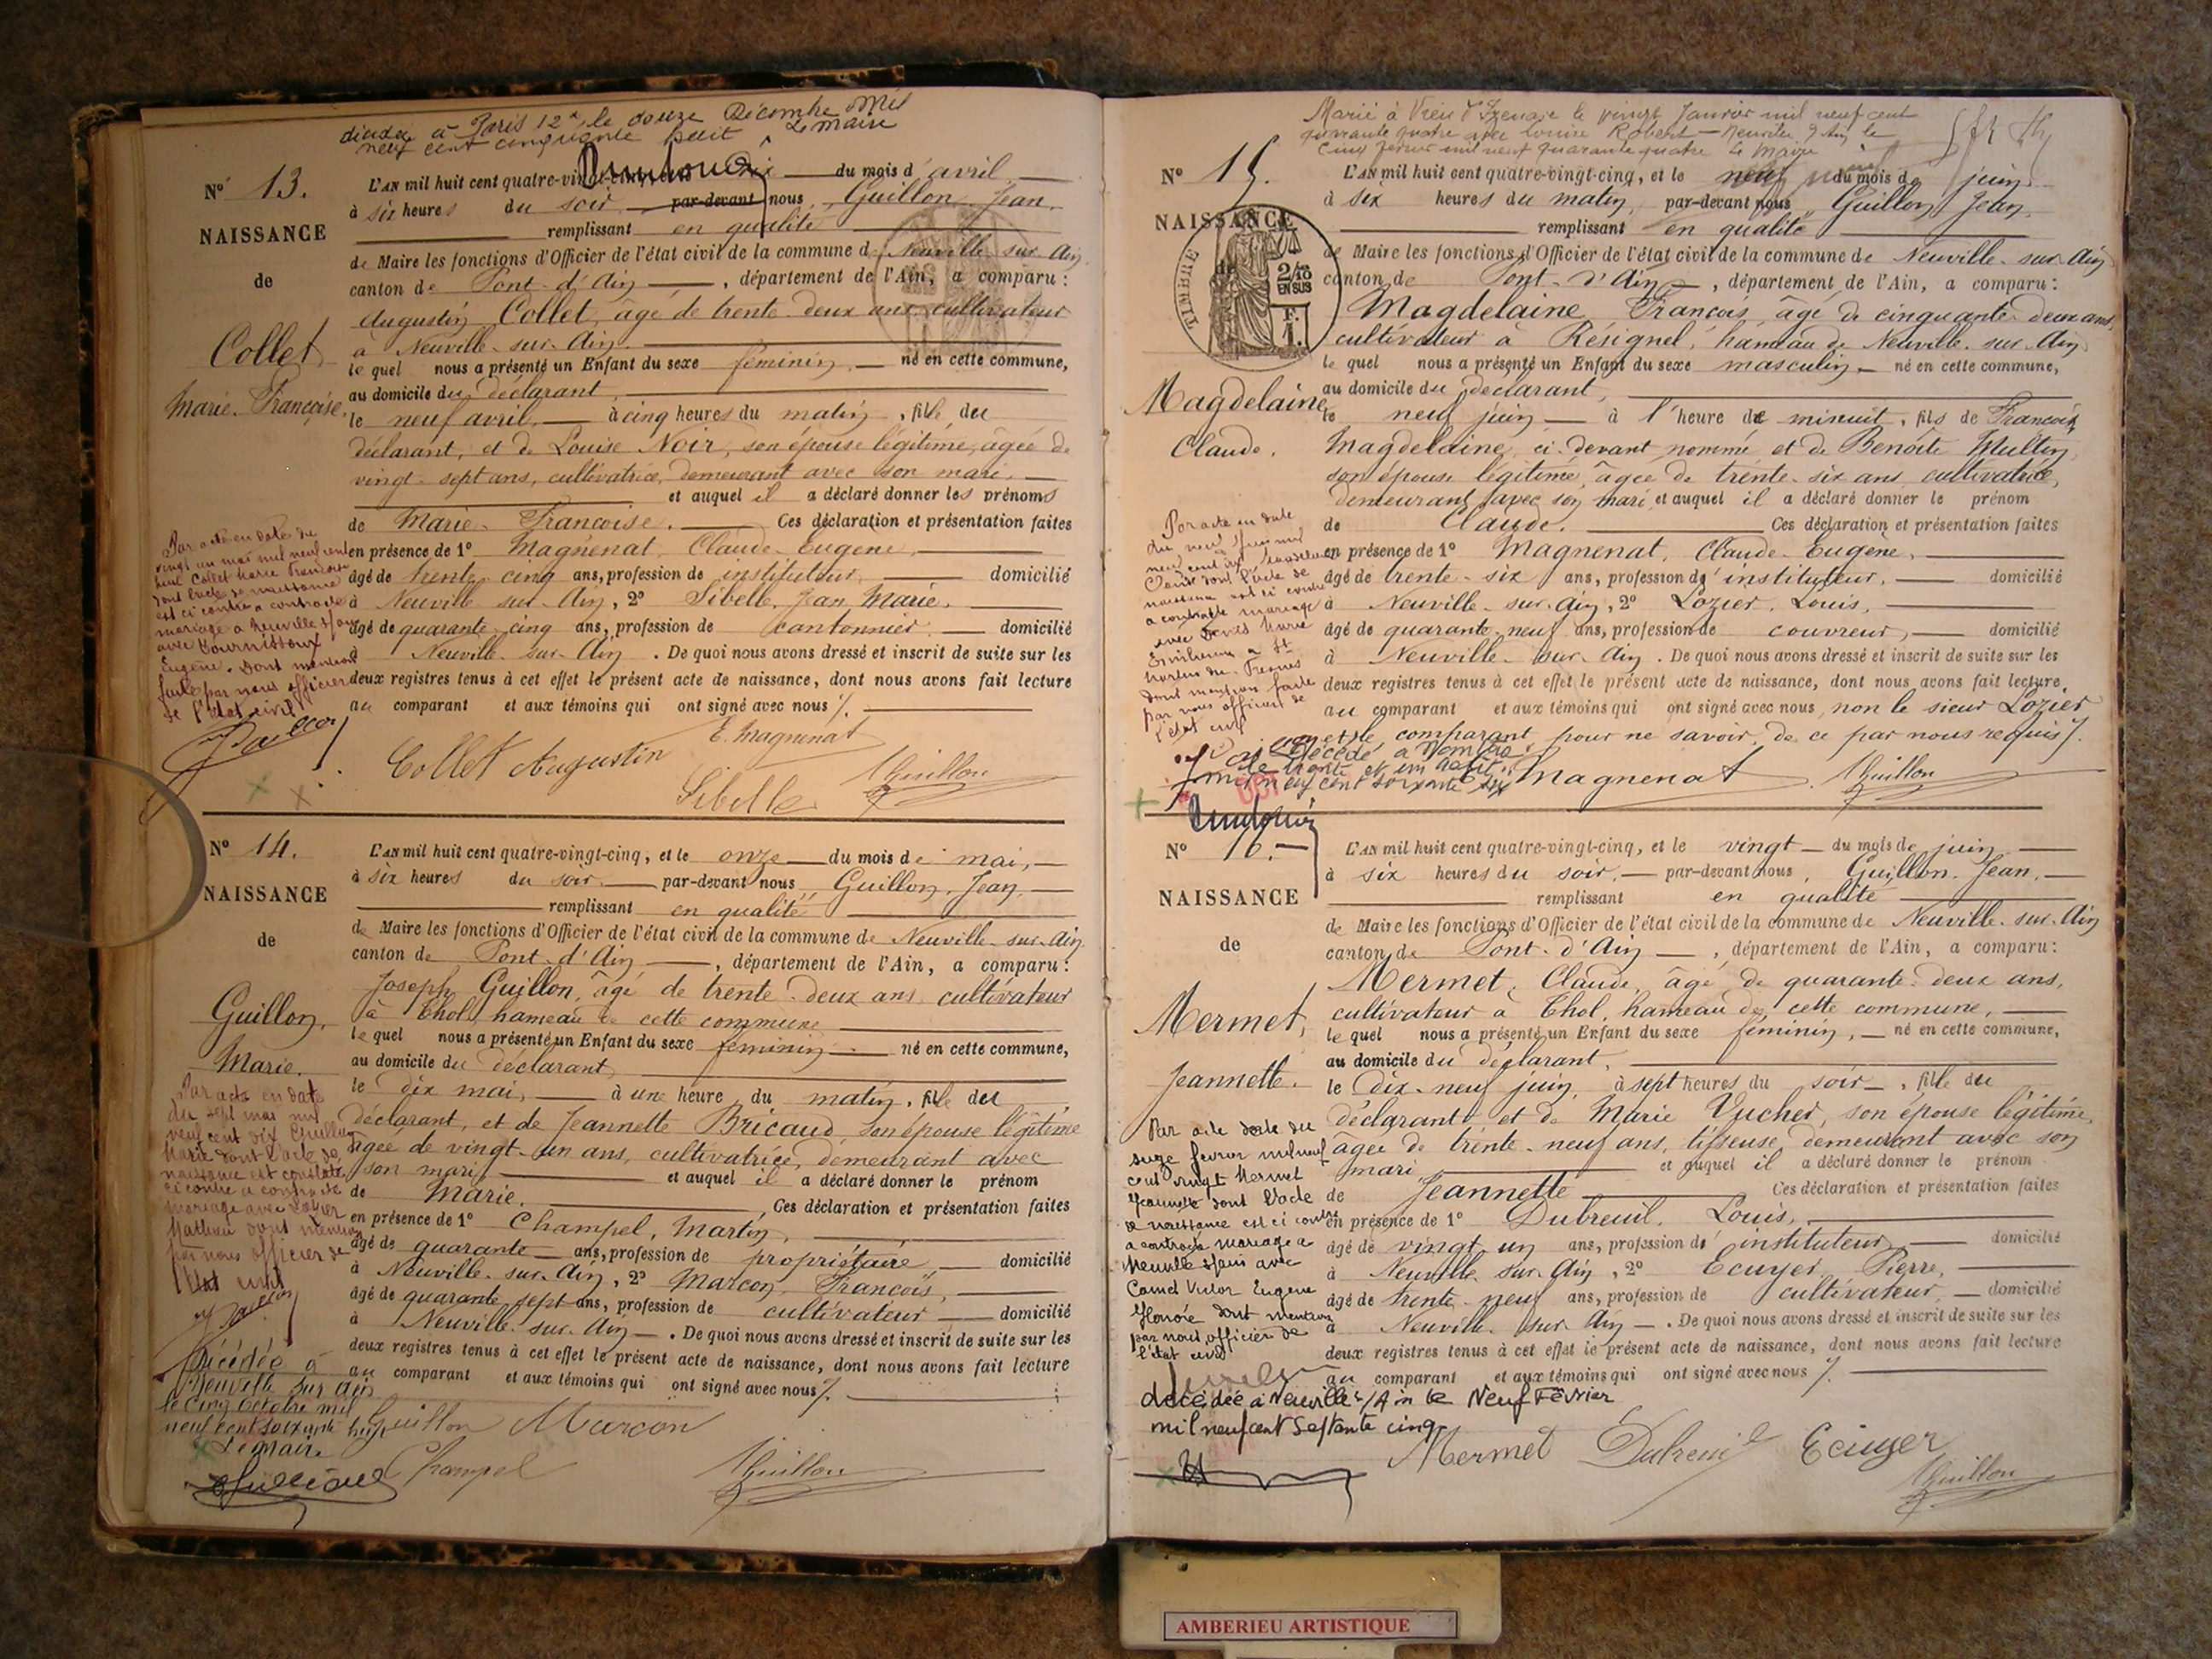 décédée à Paris 12e le douze Décembre Mil
neuf cent cinquante huit Le Maire
N° 13.
NAISSANCE
de
Collet
Marie-Françoise.
L'AN mil huit cent quatre-vingt-cinq du mois d'avril
à six heures du soir par-devant nous, Guillon Jean,
remplissant en qualité
de Maire les fonctions d'Officier de l'état civil de la commune de Neuville-sur-Ain
canton de Pont-d'Ain, département de l'Ain, a comparu :
Augustin Collet, âgé de trente-deux ans, cultivateur
à Neuville-sur-Ain.
le quel nous a présenté un Enfant du sexe féminin, né en cette commune,
au domicile du déclarant,
le neuf avril, à cinq heures du matin, fille du
déclarant, et de Louise Noir, son épouse légitime, âgée de
vingt-sept ans, cultivatrice, demeurant avec son mari,
et auquel il a déclaré donner les prénoms
de Marie-Françoise. Ces déclaration et présentation faites
en présence de 1° Magnenat, Claude-Eugène,
âgé de trente-cinq ans, profession de instituteur, domicilié
à Neuville-sur-Ain, 2° Sibelle, Jean Marie,
âgé de quarante-cinq ans, profession de cantonnier, domicilié
à Neuville-sur-Ain. De quoi nous avons dressé et inscrit de suite sur les
deux registres tenus à cet effet le présent acte de naissance, dont nous avons fait lecture
au comparant et aux témoins qui ont signé avec nous ./.
Par acte en date du
vingt un mai mil neuf cent
huit Collet Marie Françoise
dont l'acte de naissance
est ci contre a contracté
mariage à Neuville s/ain
avec Tournissoux
Eugène. Dont mention
faite par nous officier
de l'état civil
Collet Augustin
E. Magnenat
Sibelle
Guillon
N° 14.
NAISSANCE
de
Guillon,
Marie.
L'AN mil huit cent quatre-vingt-cinq, et le onze du mois de mai,
à six heures du soir par-devant nous Guillon, Jean,
remplissant en qualité
de Maire les fonctions d'Officier de l'état civil de la commune de Neuville-sur-Ain
canton de Pont-d'Ain, département de l'Ain, a comparu :
Joseph Guillon, âgé de trente-deux ans cultivateur
à Thol, hameau de cette commune,
le quel nous a présenté un Enfant du sexe féminin né en cette commune,
au domicile du déclarant,
le dix mai, à une heure du matin, fille du
déclarant, et de Jeannette Bricaud, son épouse légitime
âgée de vingt-un ans, cultivatrice, demeurant avec
son mari et auquel il a déclaré donner le prénom
de Marie. Ces déclaration et présentation faites
en présence de 1° Champel, Martin,
âgé de quarante ans, profession de propriétaire, domicilié
à Neuville-sur-Ain, 2° Marcon, François,
âgé de quarante-sept ans, profession de cultivateur domicilié
à Neuville-sur-Ain. De quoi nous avons dressé et inscrit de suite sur les
deux registres tenus à cet effet le présent acte de naissance, dont nous avons fait lecture
au comparant et aux témoins qui ont signé avec nous ./.
Par acte en date
du sept mai mil
neuf cent dix Guillon
Marie dont l'acte de
naissance est constaté
ci contre a contracté
mariage avec Lozier
Mathieu dont mention
par nous officier de
l'état civil
Décédée à
Neuville sur Ain
le Cinq Octobre mil
neuf cent soixante huit
Le Maire
Guillon Marcon
Champel
Guillon
Marié à Vieu d'Izenave le vingt Janvier mil neuf cent
quarante quatre avec Louise Robert - Neuville s/Ain, le
cinq février mil neuf quarante quatre Le Maire
N° 15.
NAISSANCE
de
TIMBRE
2/10
EN SUS
F.
1.
Magdelaine
Claude.
L'AN mil huit cent quatre-vingt-cinq, et le neuf du mois de juin
à six heures du matin, par-devant nous Guillon, Jean,
remplissant en qualité
de Maire les fonctions d'Officier de l'état civil de la commune de Neuville-sur-Ain
canton de Pont-d'Ain, département de l'Ain, a comparu :
Magdelaine, François, âgé de cinquante-deux ans,
cultivateur à Résignel, hameau de Neuville-sur-Ain
le quel nous a présenté un Enfant du sexe masculin né en cette commune,
au domicile du déclarant,
le neuf juin à l'heure de minuit, fils de François
Magdelaine, ci-devant nommé et de Benoite Multin
son épouse légitime, âgée de trente-six ans cultivatrice,
demeurant avec son mari et auquel il a déclaré donner le prénom
de Claude. Ces déclaration et présentation faites
en présence de 1° Magnenat, Claude-Eugène,
âgé de trente-six ans, profession d'instituteur, domicilié
à Neuville-sur-Ain, 2° Lozier, Louis,
âgé de quarante-neuf ans, profession de couvreur, domicilié
à Neuville-sur-Ain. De quoi nous avons dressé et inscrit de suite sur les
deux registres tenus à cet effet le présent acte de naissance, dont nous avons fait lecture,
au comparant et aux témoins qui ont signé avec nous, non le sieur Lozier
et le comparant pour ne savoir, de ce par nous requis ./.
Par acte en date
du neuf
neuf cent dix Magdelaine
Claude dont l'acte de
naissance est ci contre
a contracté mariage
avec Marie
à St
Martin du Fresnes
dont mention faite
par nous officier de
l'état civil
Décédé à
le trente et un août
mil neuf cent soixante six
Magnenat
Guillon
N° 16.
NAISSANCE
de
Mermet,
Jeannette.
L'AN mil huit cent quatre-vingt-cinq, et le vingt du mois de juin
à six heures du soir, par-devant nous, Guillon, Jean,
remplissant en qualité
de Maire les fonctions d'Officier de l'état civil de la commune de Neuville-sur-Ain
canton de Pont-d'Ain, département de l'Ain, a comparu :
Mermet, Claude, âgé de quarante-deux ans,
cultivateur à Thol, hameau de cette commune,
le quel nous a présenté un Enfant du sexe féminin, né en cette commune,
au domicile du déclarant,
le dix-neuf juin, à sept heures du soir, fille du
déclarant et de Marie Vucher, son épouse légitime,
âgée de trente-neuf ans, tisseuse, demeurant avec son
mari et auquel il a déclaré donner le prénom
de Jeannette Ces déclaration et présentation faites
en présence de 1° Dubreuil, Louis,
âgé de vingt-un ans, profession d'instituteur, domicilié
à Neuville-sur-Ain, 2° Ecuyer, Pierre,
âgé de trente-neuf ans, profession de cultivateur, domicilié
à Neuville-sur-Ain. De quoi nous avons dressé et inscrit de suite sur les
deux registres tenus à cet effet le présent acte de naissance, dont nous avons fait lecture
au comparant et aux témoins qui ont signé avec nous ./.
Par acte date du
seize février mil neuf
cent vingt Mermet
Jeannette dont l'acte
de naissance est ci contre
a contracté mariage à
Neuville s/ain avec
Camel Victor Eugène
Honoré dont mention
par nous officier de
l'état civil
décédée à Neuville s/Ain le Neuf Février
mil neuf cent Septante cinq
Mermet Dubreuil Ecuyer
Guillon
AMBERIEU ARTISTIQUE